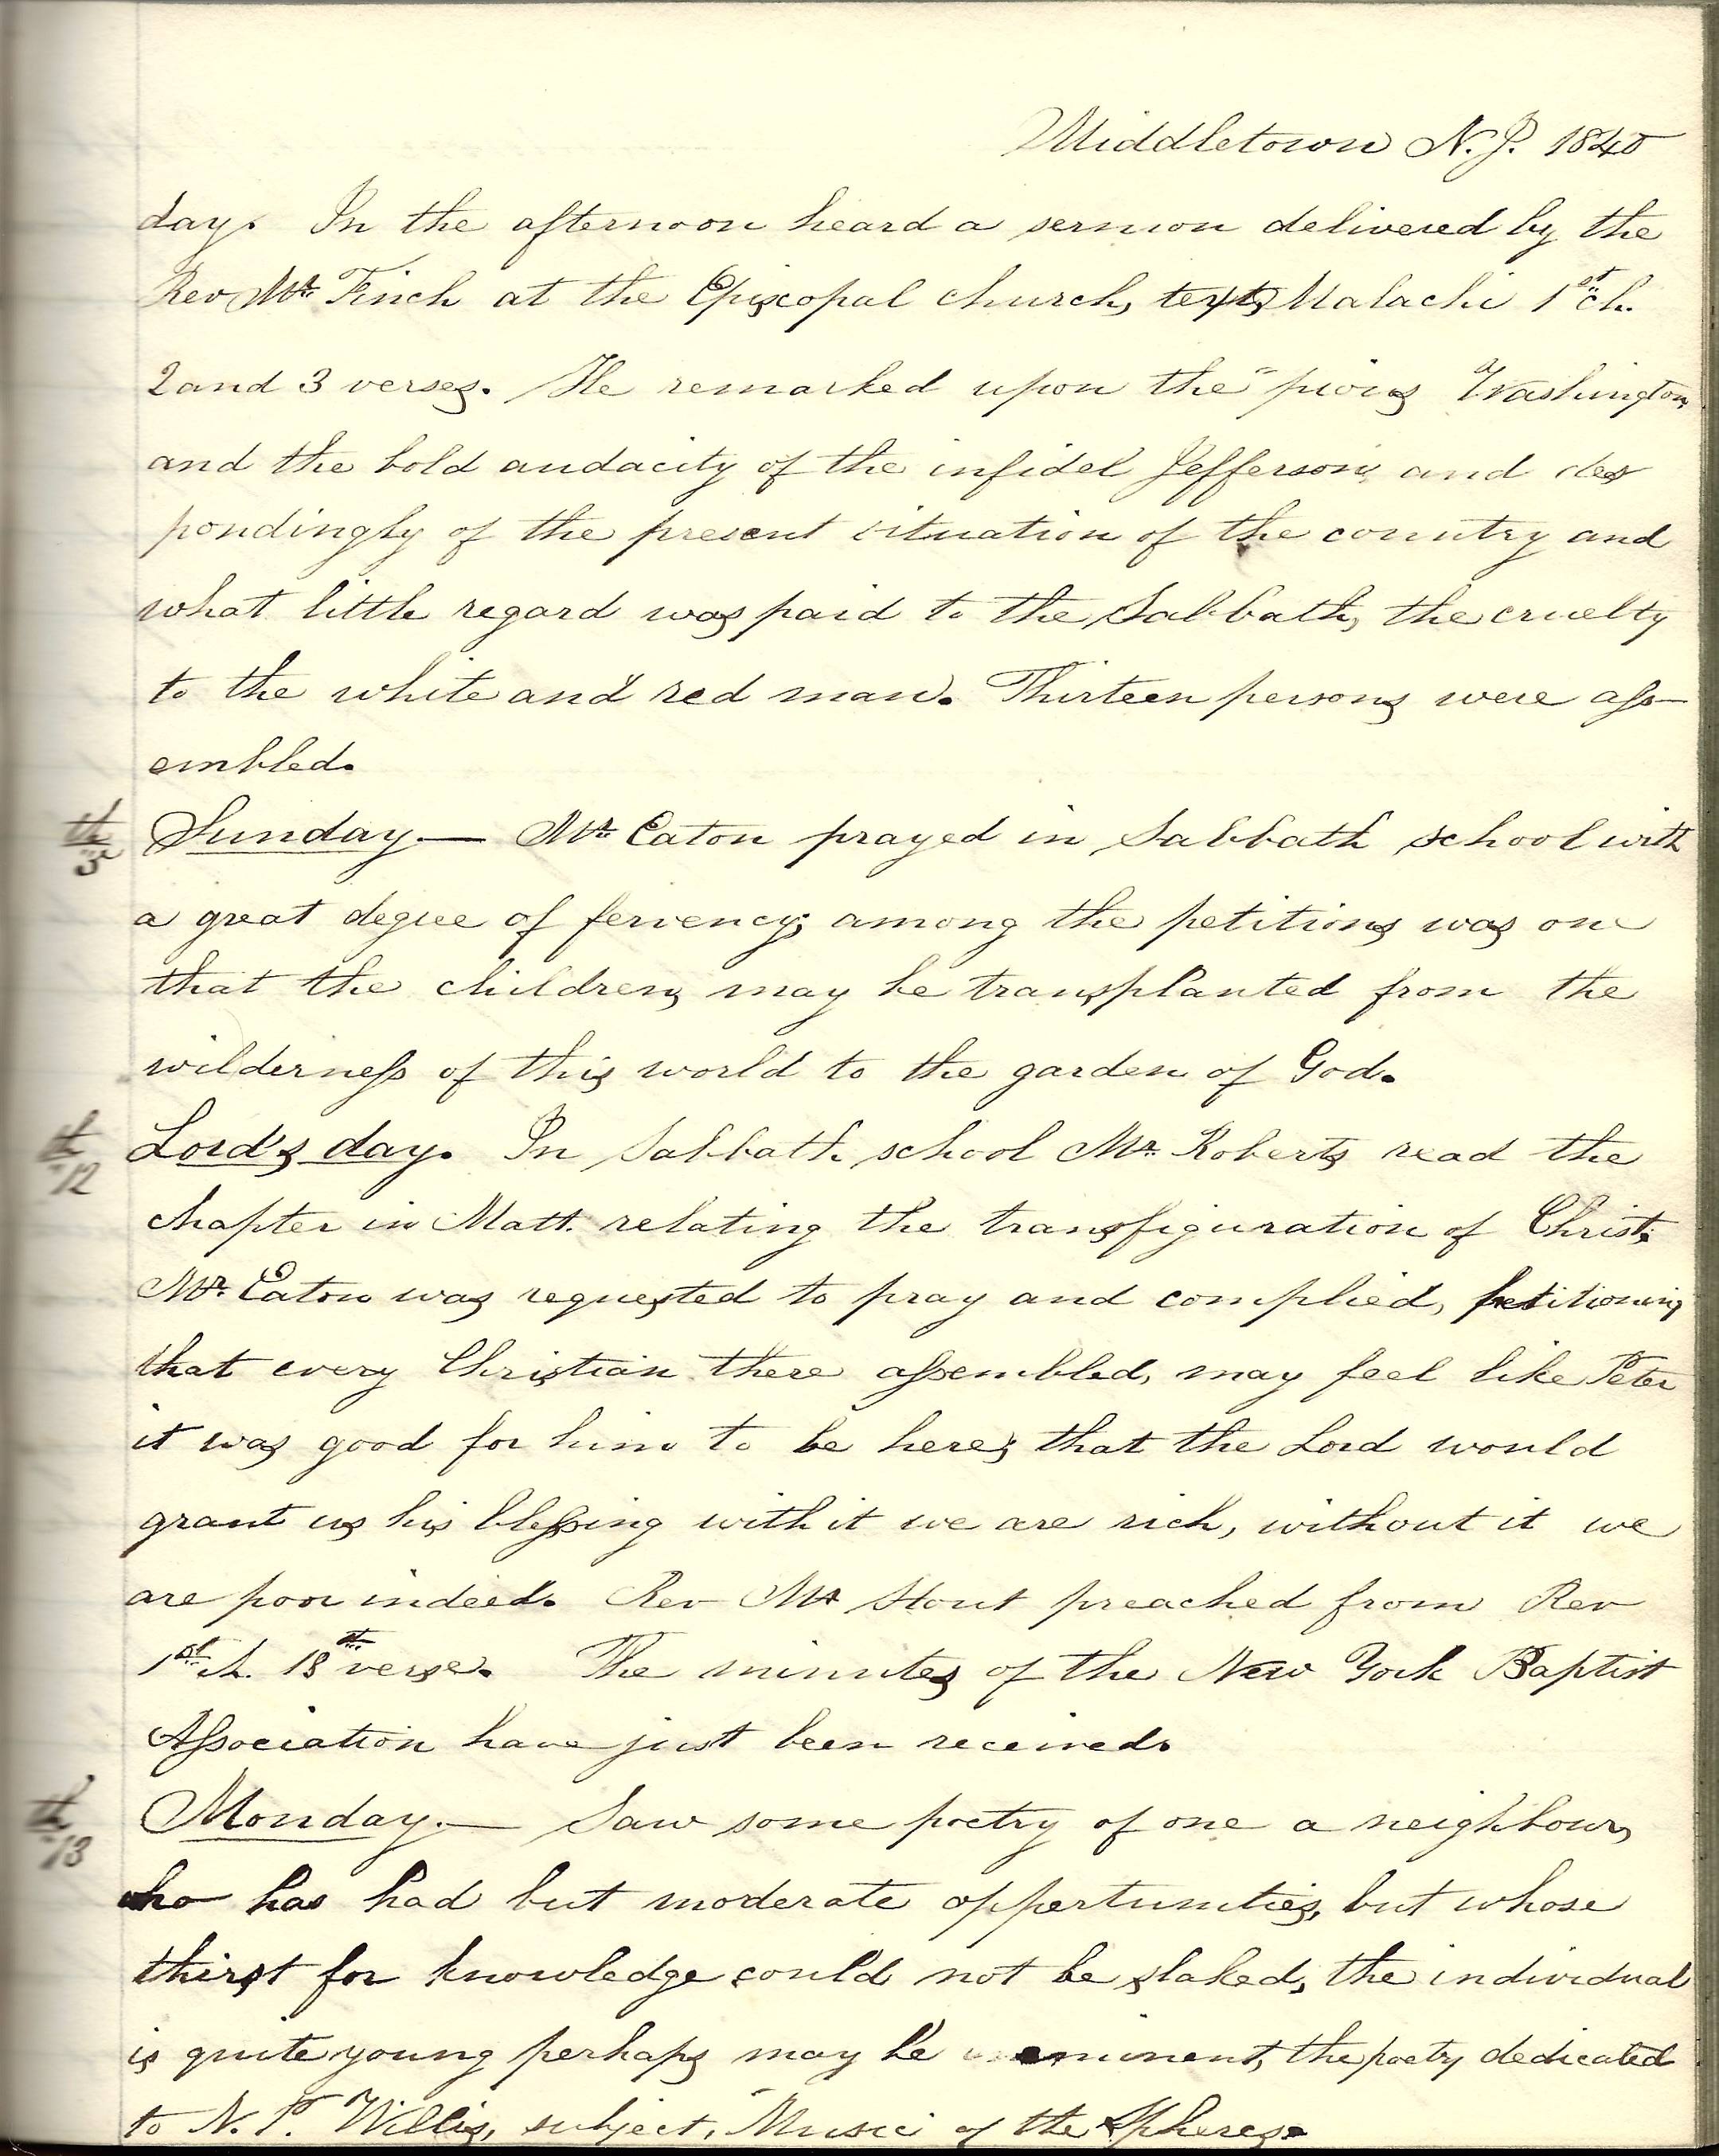 Middletown N.J. 1840
day. In the afternoon heard a sermon delivered by the
Rev Mr. Finch at the Episcopal church, text, Malachi 1st ch.
2 and 3 verses. He remarked upon the pious Washington,
and the bold audacity of the infidel Jefferson, and des
pondingly of the present situation of the country and
what little regard was paid to the Sabbath, the cruelty
to the white and red man. Thirteen persons were ass—
embled.
th 3 Sunday.— Mr. Eaton prayed in Sabbath school with
a great degree of fervency; among the petitions was one
that the children, may be transplanted from the
wilderness of this world to the garden of God.
th 12 Lord's day. In Sabbath school Mr. Roberts read the
chapter in Matt. relating the transfiguration of Christ.
Mr. Eaton was requested to pray and complied, petitioning
that every Christian there assembled, may feel like Peter
it was good for him to be here; that the Lord would
grant us his blessing with it we are rich, without it we
are poor indeed. Rev Mr Stout preached from Rev
1st ch. 18th verse. The minutes of the New York Baptist
Association have just been received.
th 13 Monday.— Saw some poetry of one a neighbour,
who has had but moderate oppertunities, but whose
thirst for knowledge could not be slaked, the individual
is quite young perhaps may be eminent, the poety dedicated
to N. P. Willis, subject, Music of the Spheres.